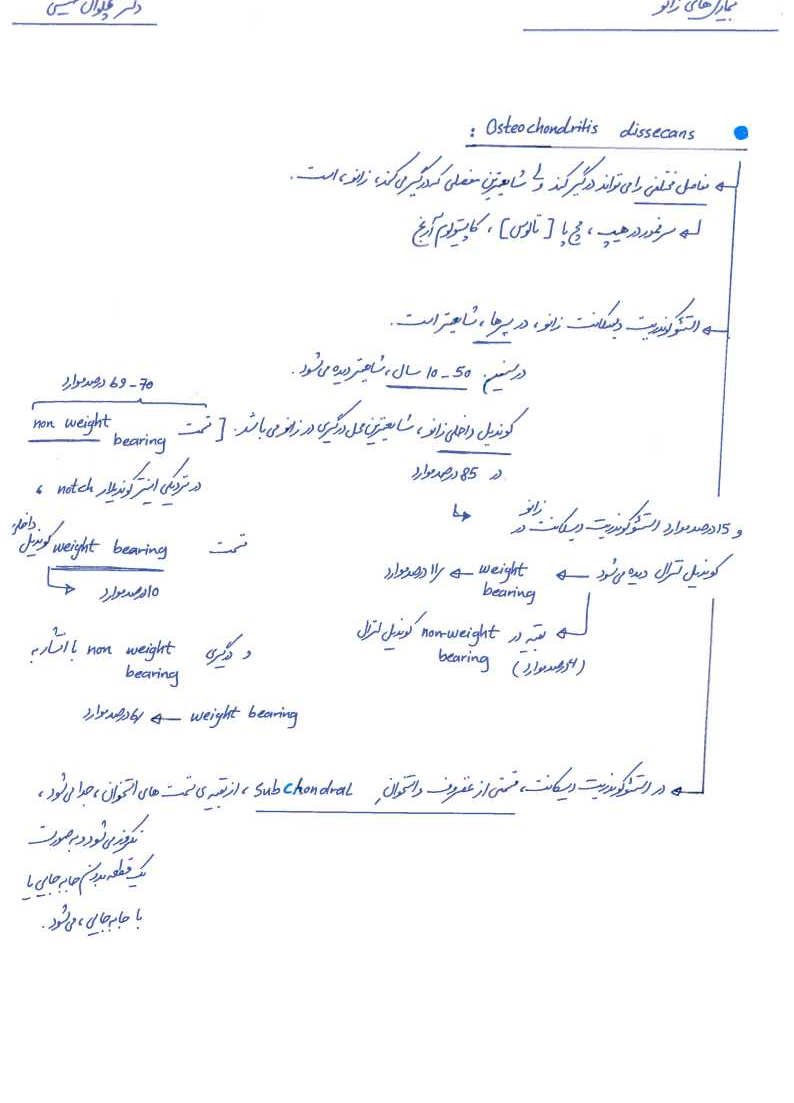 بیماری های زانو
دکتر پهلوان حسینی
Osteochondritis dissecans :
مفاصل مختلفی را می تواند درگیر کند ولی شایعترین مفصلی که درگیر می کند، زانو، است.
سر فمور در هیپ ، مچ پا [تالوس] ، کاپیتولوم آرنج
استئوکندریت دیسکانت زانو، در پسرها ، شایعتر است.
در سنین 10-50 سال، شایعتر دیده می شود.
69-70 درصد موارد
کوندیل داخلی زانو، شایعترین محل درگیری در زانو می باشد. [قسمت non weight bearing
در 85 درصد موارد
در نزدیکی اینترکوندیلار notch ،
قسمت weight bearing کوندیل داخلی
10 درصد موارد
و درگیری non weight bearing با اشاره به
weight bearing ← 6% درصد موارد
و 15 درصد موارد استئوکوندریت دیسکانت در زانو
کوندیل لترال دیده می شود ← weight bearing ← 11% درصد موارد
بقیه در non-weight bearing کوندیل لترال
(4 درصد موارد)
در استئوکوندریت دیسکانت، قسمتی از غضروف و استخوانِ subchondral ، از بقیه ی قسمت های استخوان ، جدا می شود ،
نکروز می شود و به صورت
یک قطعه بدون جابه جایی یا
با جابه جایی ، می شود.